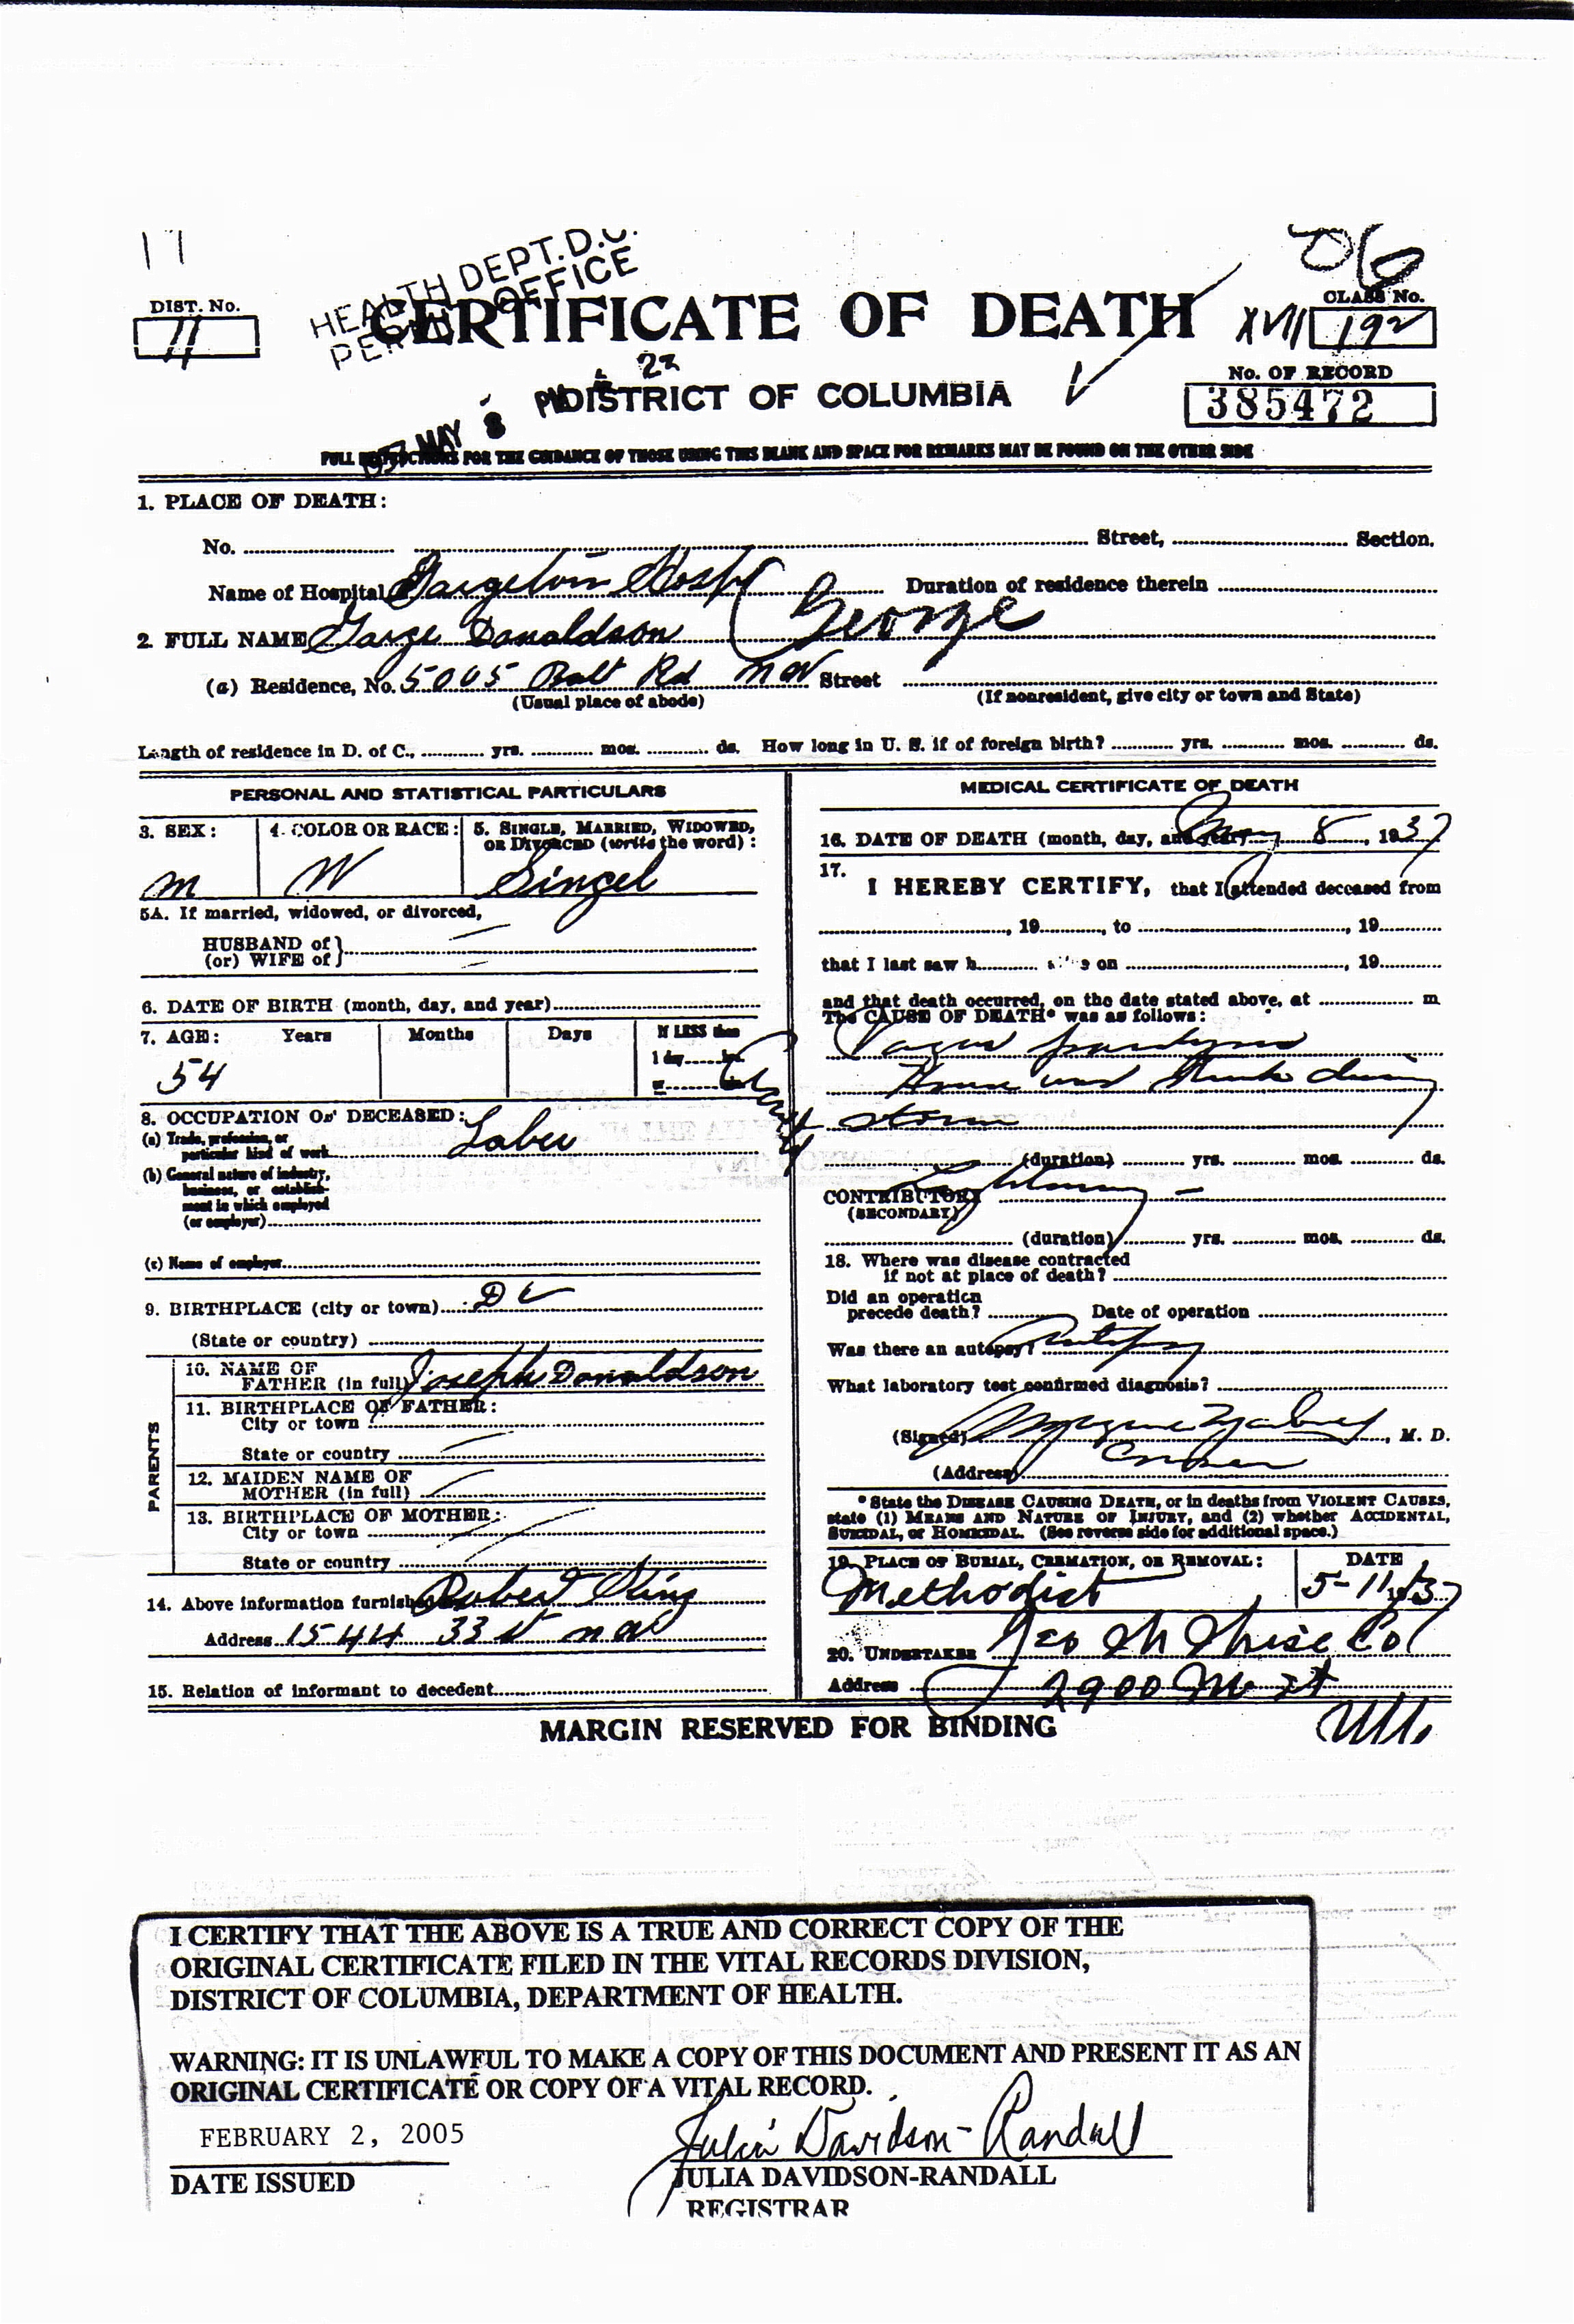 17
HEALTH DEPT. D.C.
OFFICE
DIST. No.
11
CERTIFICATE OF DEATH
XVII
CLASS No.
192
DISTRICT OF COLUMBIA
MAY 8 PM 4 22
No. OF RECORD
385472
FULL INSTRUCTIONS FOR THE GUIDANCE OF THOSE USING THIS BLANK AND SPACE FOR REMARKS MAY BE FOUND ON THE OTHER SIDE
1. PLACE OF DEATH:
No. Street, Section.
Name of Hospital Duration of residence therein
2. FULL NAME Donaldson (George
(a) Residence, No. 5005 Street
(Usual place of abode) (If nonresident, give city or town and State)
Length of residence in D. of C., yrs. mos. ds. How long in U. S. if of foreign birth? yrs. mos. ds.
PERSONAL AND STATISTICAL PARTICULARS
3. SEX: 4. COLOR OR RACE: 5. SINGLE, MARRIED, WIDOWED, OR DIVORCED (write the word):
M W Singel
5A. If married, widowed, or divorced,
HUSBAND of
(or) WIFE of
6. DATE OF BIRTH (month, day, and year)
7. AGE: Years Months Days If LESS than
1 day
54
8. OCCUPATION OF DECEASED:
(a) Trade, profession, or
particular kind of work
(b) General nature of industry,
business, or establish-
ment in which employed
(or employer)
(c) Name of employer
9. BIRTHPLACE (city or town) D C
(State or country)
PARENTS
10. NAME OF
FATHER (in full) Joseph Donaldson
11. BIRTHPLACE OF FATHER:
City or town
State or country
12. MAIDEN NAME OF
MOTHER (in full)
13. BIRTHPLACE OF MOTHER:
City or town
State or country
14. Above information furnished Robert
Address 1544 33 St NW
15. Relation of informant to decedent
MEDICAL CERTIFICATE OF DEATH
16. DATE OF DEATH (month, day, and year) May 8, 1937
17.
I HEREBY CERTIFY, that I attended deceased from
, 19 , to , 19
that I last saw h on , 19
and that death occurred, on the date stated above, at m
The CAUSE OF DEATH* was as follows:
during
storm
(duration) yrs. mos. ds.
CONTRIBUTORY Lightning
(SECONDARY)
(duration) yrs. mos. ds.
18. Where was disease contracted
if not at place of death?
Did an operation
precede death? Date of operation
Was there an autopsy?
What laboratory test confirmed diagnosis?
(Signed) , M. D.
(Address) Coroner
*State the DISEASE CAUSING DEATH, or in deaths from VIOLENT CAUSES,
state (1) MEANS AND NATURE OF INJURY, and (2) whether ACCIDENTAL,
SUICIDAL, or HOMICIDAL. (See reverse side for additional space.)
19. PLACE OF BURIAL, CREMATION, OR REMOVAL: DATE
Methodist 5-11, 1937
20. UNDERTAKER Co
Address 2900 M St
MARGIN RESERVED FOR BINDING
I CERTIFY THAT THE ABOVE IS A TRUE AND CORRECT COPY OF THE
ORIGINAL CERTIFICATE FILED IN THE VITAL RECORDS DIVISION,
DISTRICT OF COLUMBIA, DEPARTMENT OF HEALTH.
WARNING: IT IS UNLAWFUL TO MAKE A COPY OF THIS DOCUMENT AND PRESENT IT AS AN
ORIGINAL CERTIFICATE OR COPY OF A VITAL RECORD.
FEBRUARY 2, 2005 Julia Davidson-Randall
DATE ISSUED JULIA DAVIDSON-RANDALL
REGISTRAR